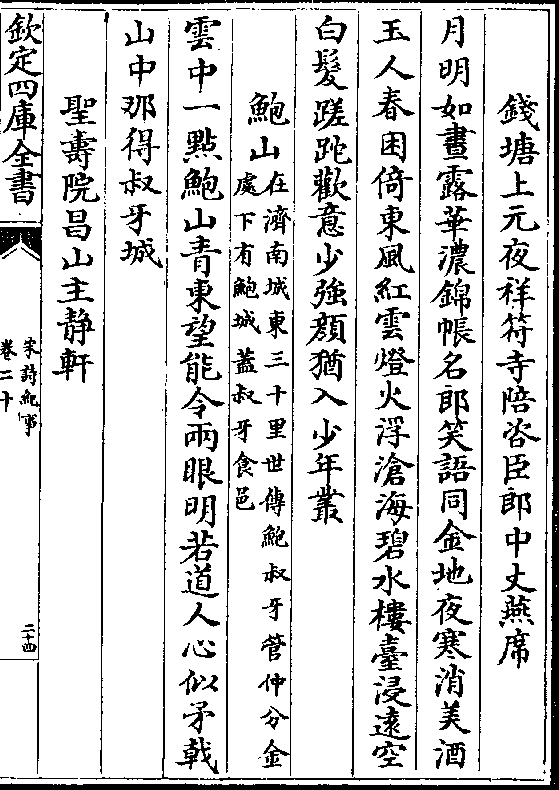 錢塘上元夜祥符寺陪咨臣郎中丈燕席
月明如晝露華濃錦帳名郎笑語同金地夜寒消美酒
玉人春困倚東風紅雲燈火浮滄海碧水樓臺浸遠空
白髮蹉跎歡意少強顔猶入少年叢
鮑山在濟南城東三十里世傳鮑叔牙管仲分金
處下有鮑城蓋叔牙食邑
雲中一點鮑山青東望能令兩眼明若道人心似矛戟
山中那得叔牙城
聖壽院昌山主静軒
欽定四庫全書
宋詩紀事
卷二十
二十四